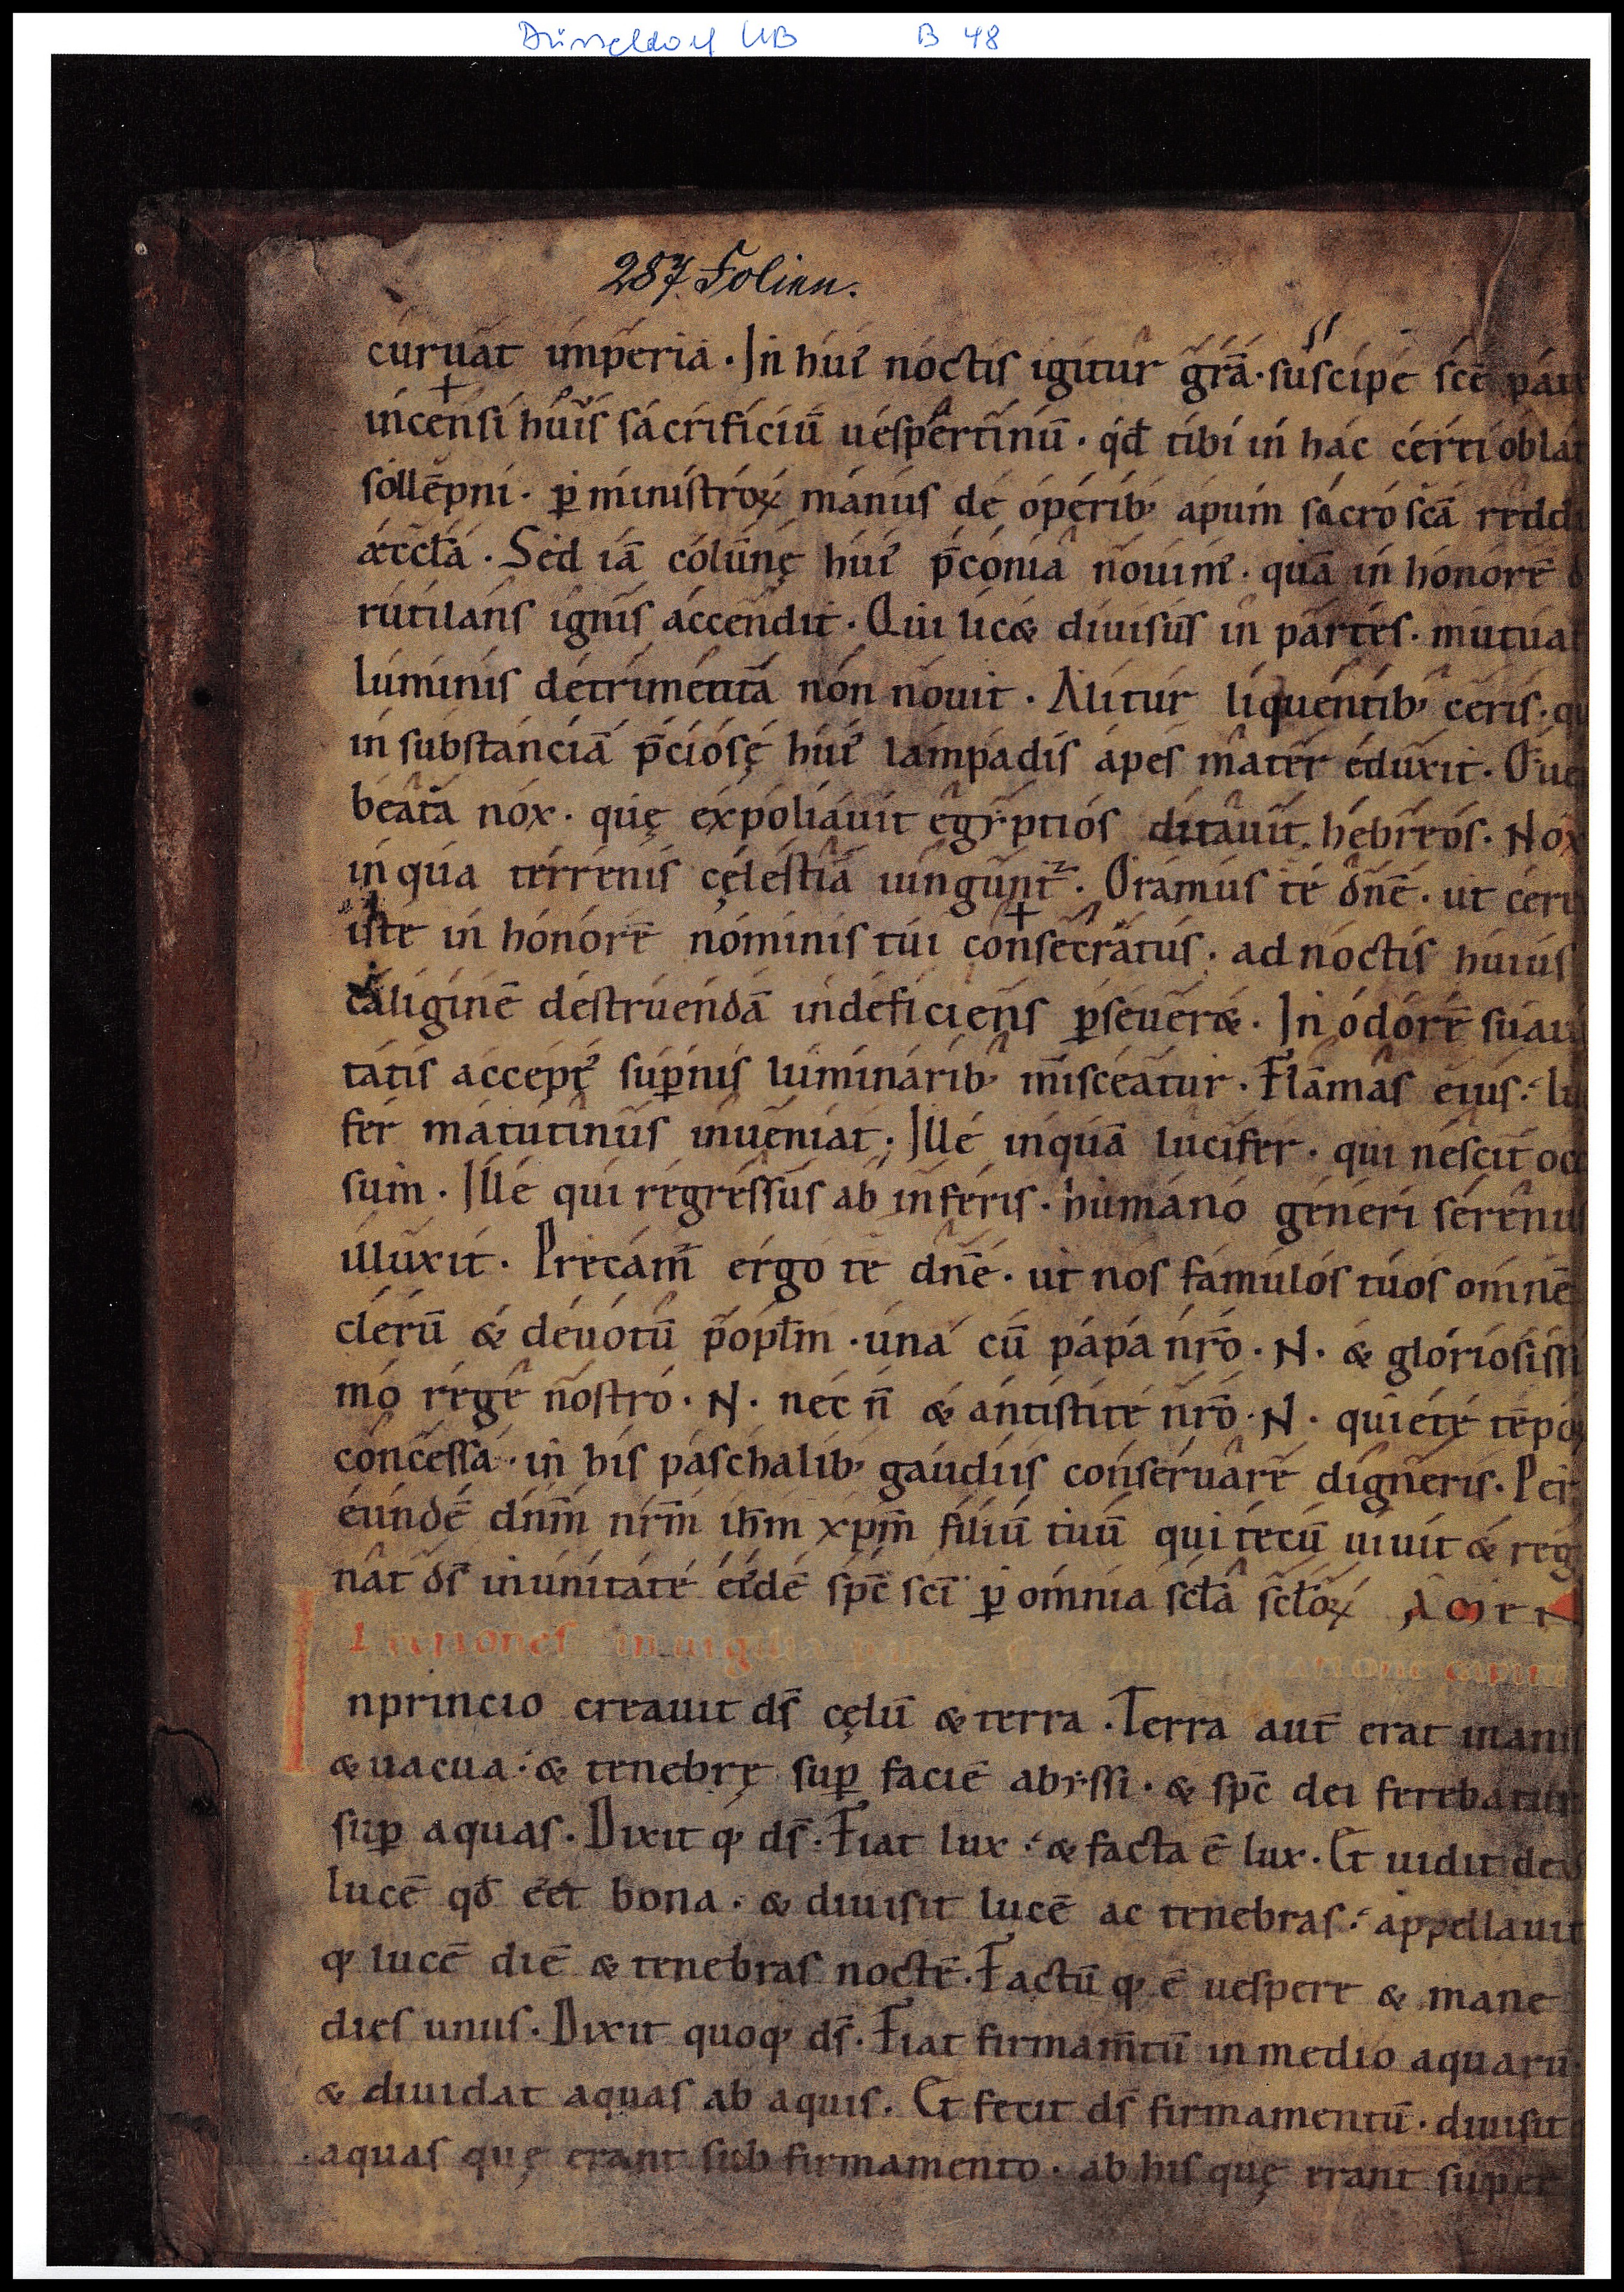 Düsseldorf UB B 48
287 Folien.
curuat imperia · In hui᾽ noctis igitur gr̄a · suscipe sc̄e pat
incensi huı᾽s sacrificiū uespertinū · qd̄ tibi in hac cerei oblat
sollēpni · ꝑ ministroꝝ manus de operib; apum sacro sc̄a redd
ęccła · Sed iā colūnę hui᾽ p̄conia nouim᾽ · quā in honorē d
rutilans ignis accendit · Qui lic& diuisus in partes · mutua
luminis detrimenta non nouit · Alitur liquentib; ceris · qu
in substanciā p̄ciosę hui᾽ lampadis apes mater eduxit · O ue
beata nox · quę expoliauit egyptios ditauit hebreos · Nox
in qua terrenis cęlestia iungunt᷑ · Oramus te dn̄e · ut cere
iste in honorē nominis tui consecratus · ad noctis huius
caliginē destruendā indeficiens ꝑseuer& · In odorē suaui
tatis accept᾽ suꝑnis luminarib; misceatur · Flāmas eius · lu
fer matutinus inueniat · Ille inquā lucifer · qui nescit occ
sum · Ille qui regressus ab inferis · humano generi serenus
illuxit · Precam᷑ ergo te dn̄e · ut nos famulos tuos omnē
clerū & deuotū popłm · una cū papa nr̄o · N · & gloriosissi
mo rege nostro · N · nec n̄ & antistite nr̄o · N · quiete tēpoꝝ
concessa · in his paschalib; gaudiis conseruare digneris · Per
eundē dn̄m nr̄m ih̄m xp̄m filiū tuū qui tecū uiuit & reg
nat ds̄ in unitate ei᾽dē sp̄c sc̄i ꝑ omnia scła scłoꝝ Amen
Lectiones in uigilia
Inprincio creauit ds̄ cęlū & terra · Terra aut̄ erat inanis
& uacua · & tenebrę suꝑ faciē abyssi · & sp̄c dei ferebatur
suꝑ aquas · Dixit q; ds̄ · Fiat lux · & facta ē lux · Et uidit deus
lucē qd̄ eet̄ bona · & diuisit lucē ac tenebras · appellauit
q; lucē diē & tenebras noctē · Factū q; ē uespere & mane
dies unus · Dixit quoq; ds̄ · Fiat firmam̄tū in medio aquarū ·
& diuidat aquas ab aquis · Et fecit ds̄ firmamentū · diuisit
aquas quę erant sub firmamento · ab his quę errant super